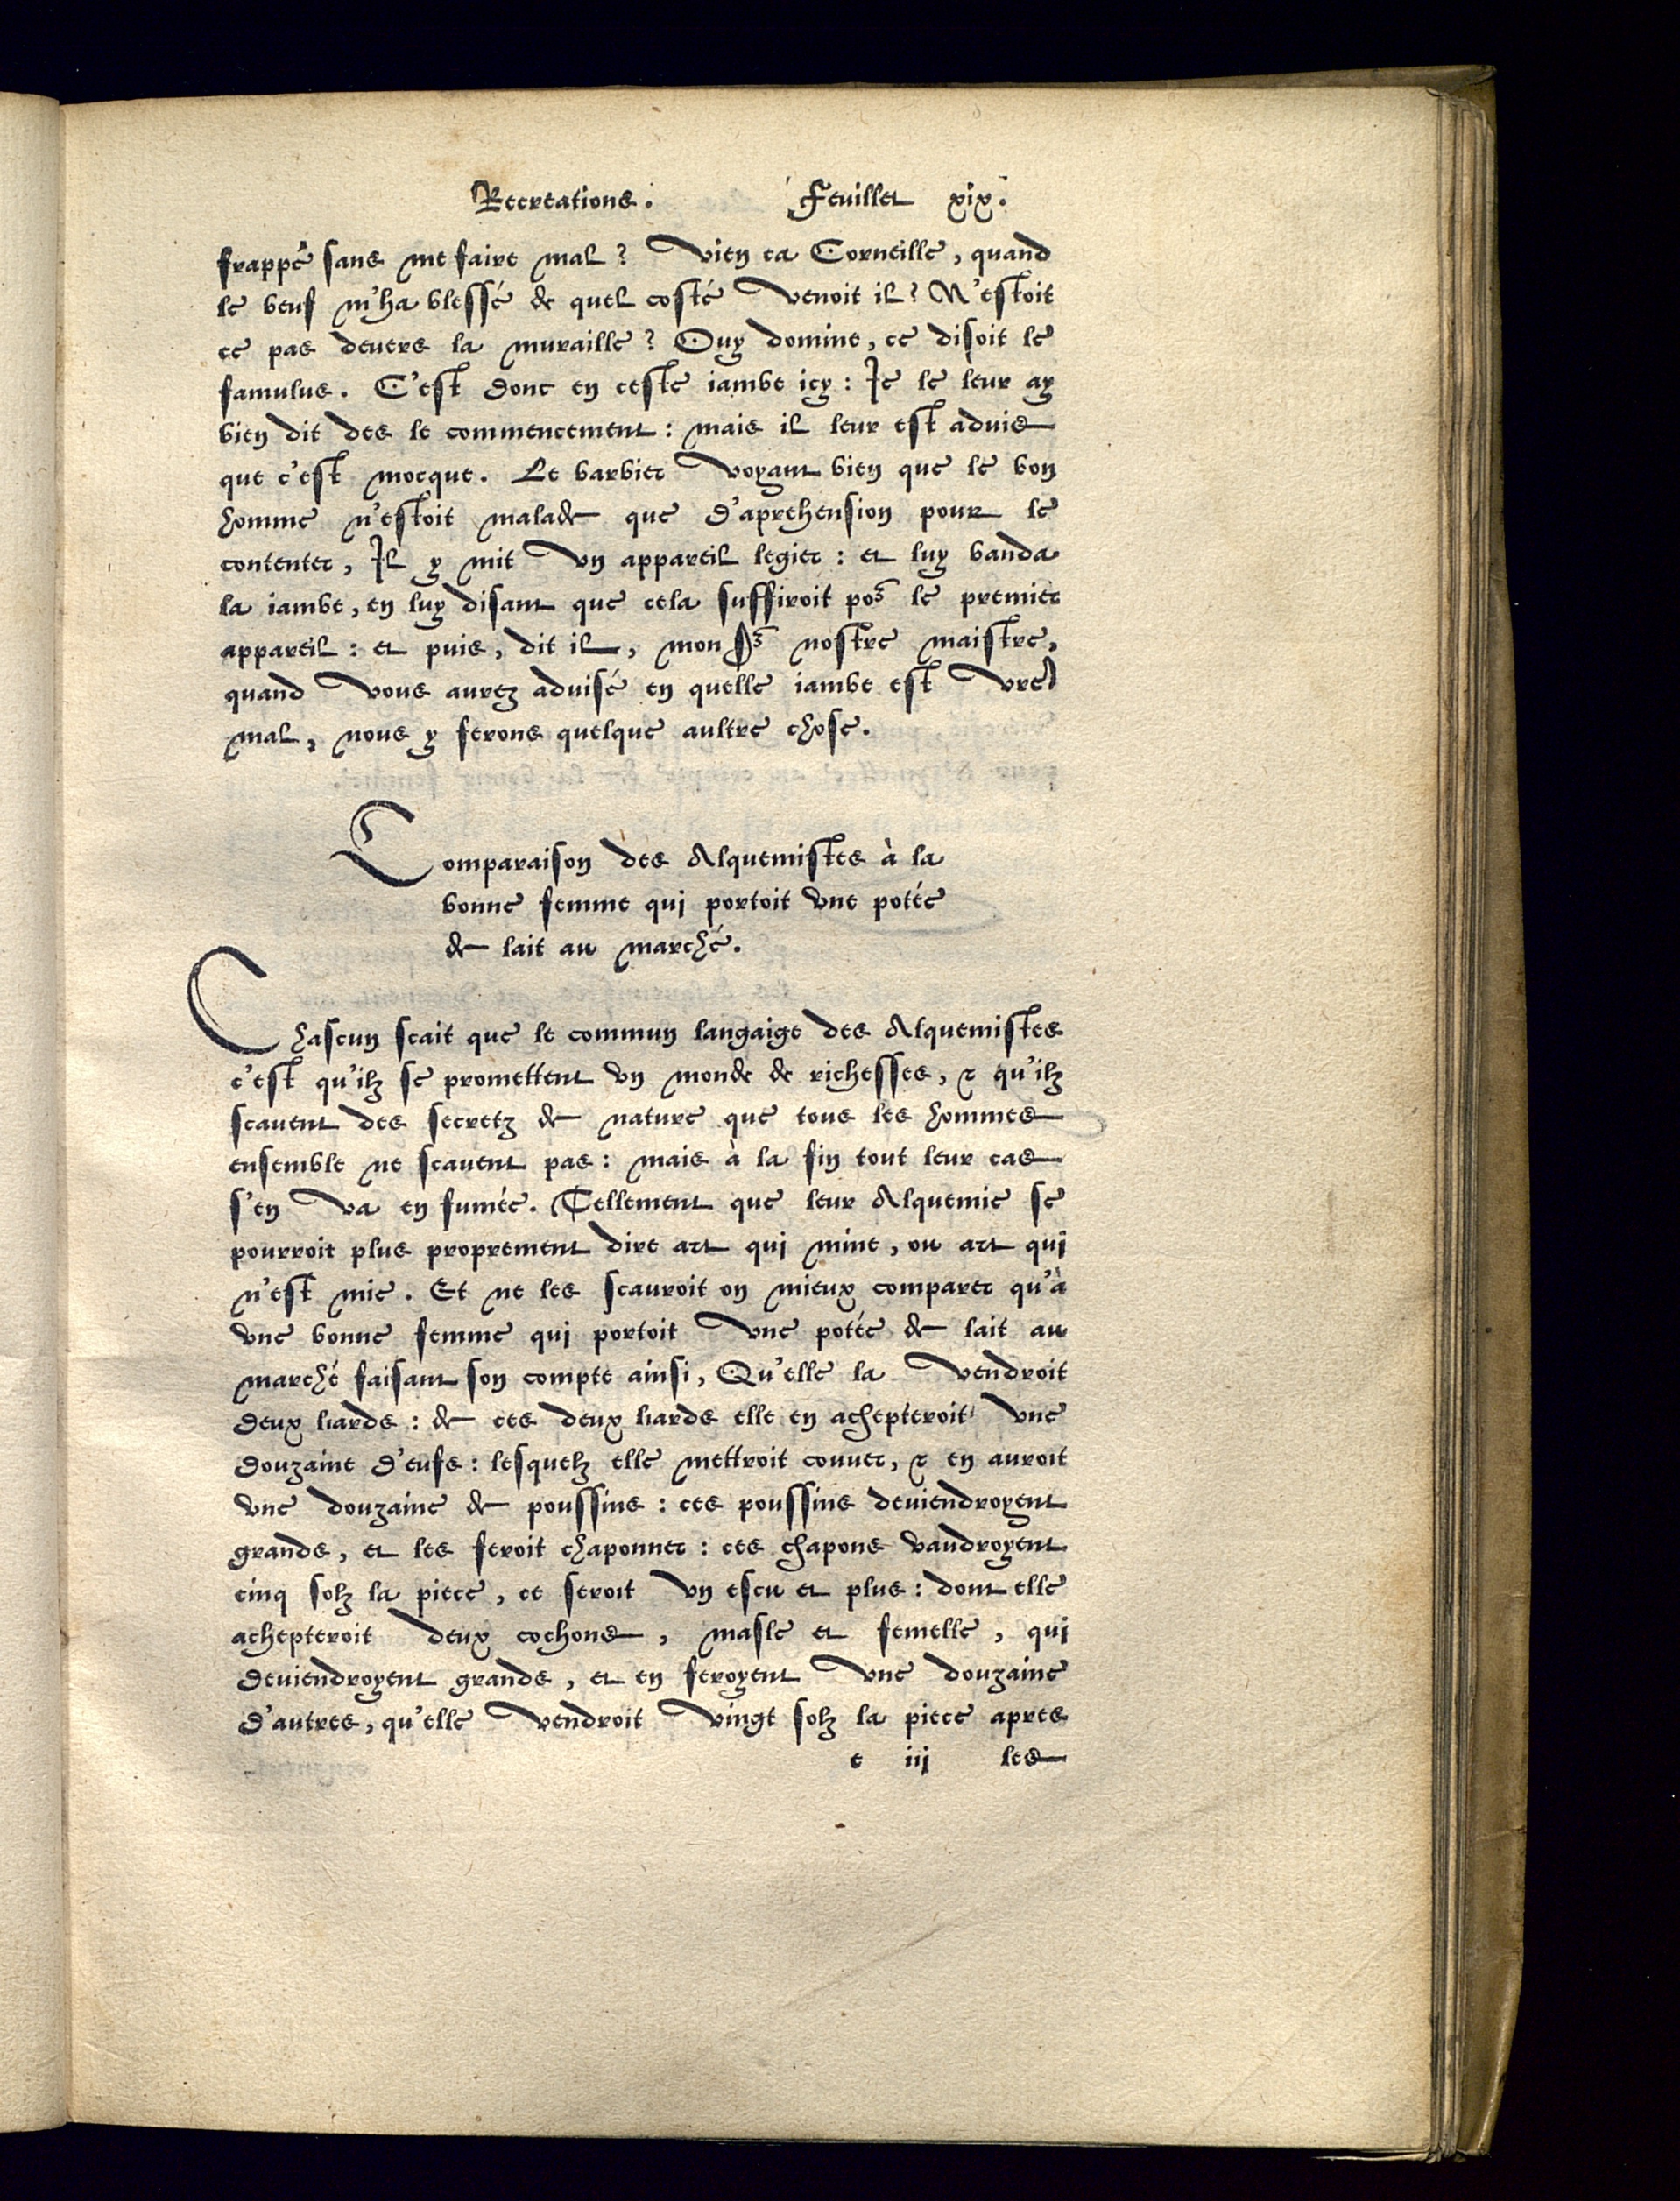 Recreations. Feuillet xix.
frappé sans me faire mal? Vien ca Corneille, quand
le beuf m'ha blessé de quel costé venoit il? N'estoit
ce pas deuers la muraille? Ouy domine, ce disoit le
famulus. C'est donc en ceste iambe icy: Ie le leur ay
bien dit des le commencement: mais il leur est aduis
que c'est mocque. Le barbier voyant bien que le bon
homme n'estoit malade que d'aprehension pour le
contenter, Il y mit vn appareil legier: et luy banda
la iambe, en luy disant que cela suffiroit poᷣ le premier
appareil: et puis, dit il, monſᷣ nostre maistre,
quand vous aurez aduisé en quelle iambe est vre
mal, nous y ferons quelque aultre chose.
Comparaison des Alquemistes à la
bonne femme qui portoit vne potée
de lait au marché.
Chascun scait que le commun langaige des Alquemistes
c'est qu'ilz se promettent vn monde de richesses, & qu'ilz
scauent des secretz de nature que tous les hommes
ensemble ne scauent pas: mais à la fin tout leur cas
s'en va en fumée. Tellement que leur Alquemie se
pourroit plus proprement dire art qui mine, ou art qui
n'est mie. Et ne les scauroit on mieux comparer qu'à
vne bonne femme qui portoit vne potée de lait au
marché faisant son compte ainsi, Qu'elle la vendroit
deux liards: de ces deux liards elle en achepteroit vne
douzaine d'eufs: lesquelz elle mettroit couuer, & en auroit
vne douzaine de poussins: ces poussins deuiendroyent
grands, et les feroit chaponner: ces chapons vaudroyent
cinq solz la piece, ce seroit vn escu et plus: dont elle
achepteroit deux cochons, masle et femelle, qui
deuiendroyent grands, et en feroyent vne douzaine
d'autres, qu'elle vendroit vingt solz la piece apres
e iij les